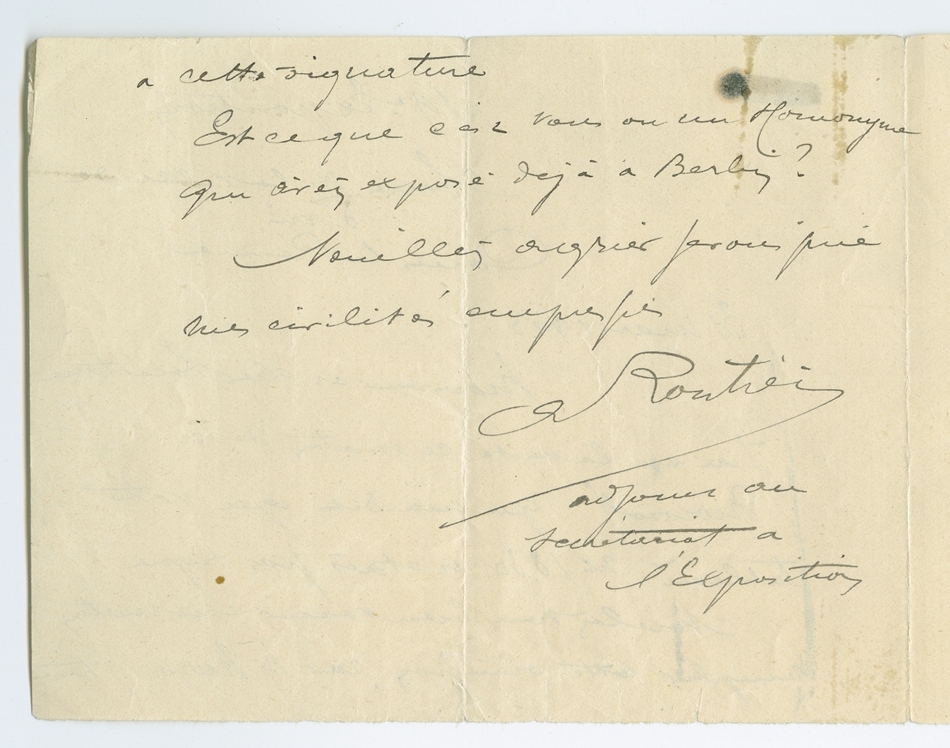 a cette signature
Est ce que c'est vous ou un Homonyme
qui avez exposé déjà à Berlin ?
Veuillez agréer je vous prie
mes civilités empressées
A Routier
adjoint au
secrétariat a
l'Exposition